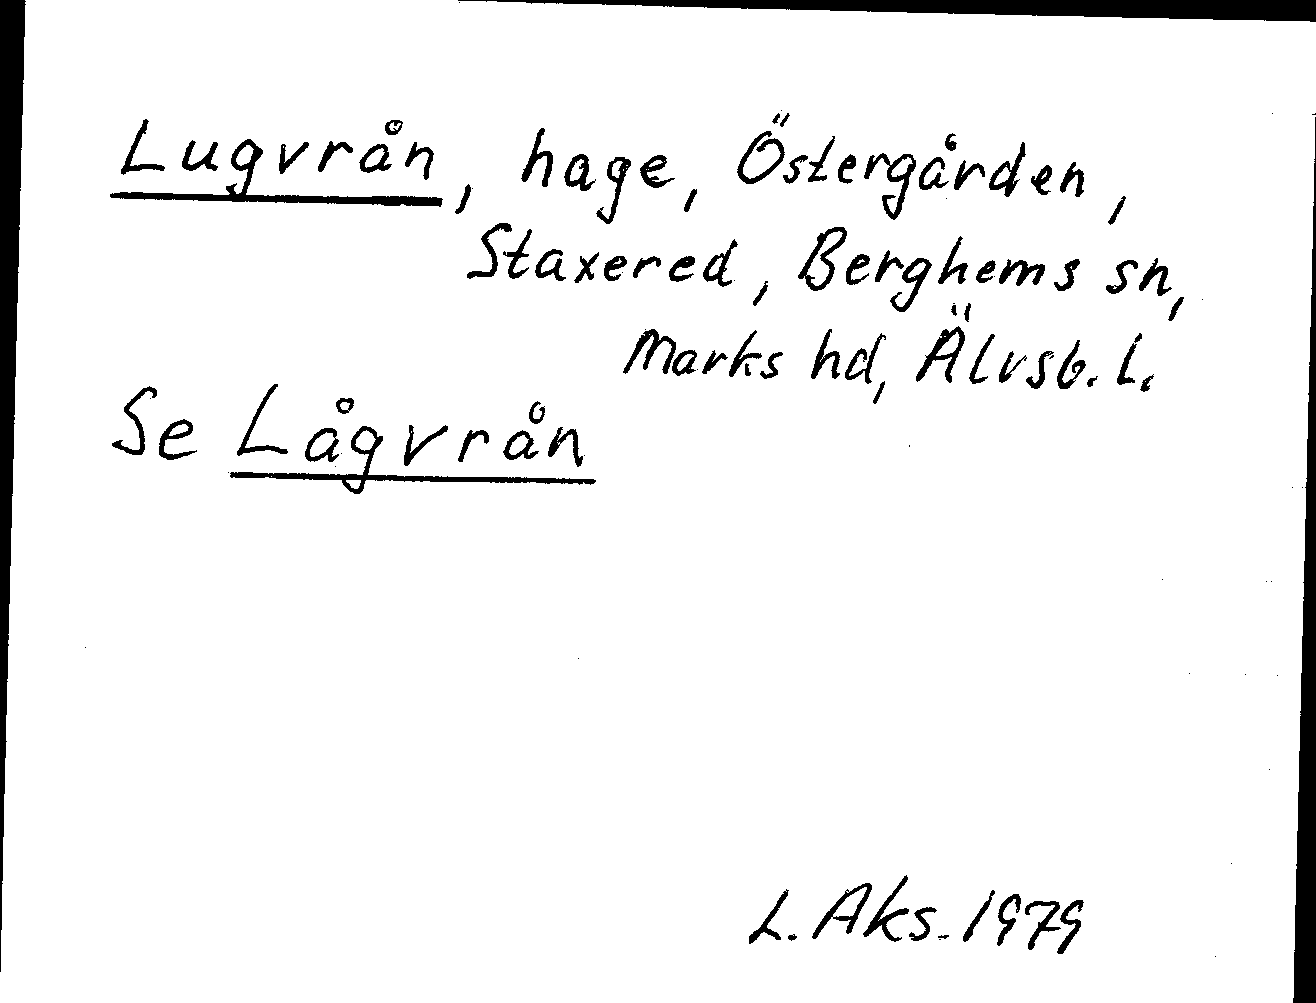 Lugvrån, hage, Östergården,
Staxered, Berghems sn,
Marks hd, Älvsb. L.
Se Lågvrån
L. Aks. 1979